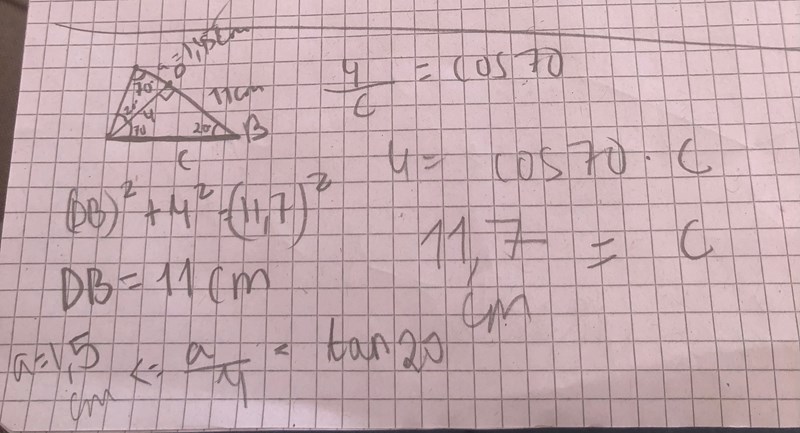 a=1,5cm
D
70°
11cm
20
4
70
20
B
C
4/C = cos 70
4= cos 70 · C
(DB)² + 4² = (11,7)²
11,7 = C
cm
DB = 11 cm
a=1,5 <= a/4 = tan 20
cm